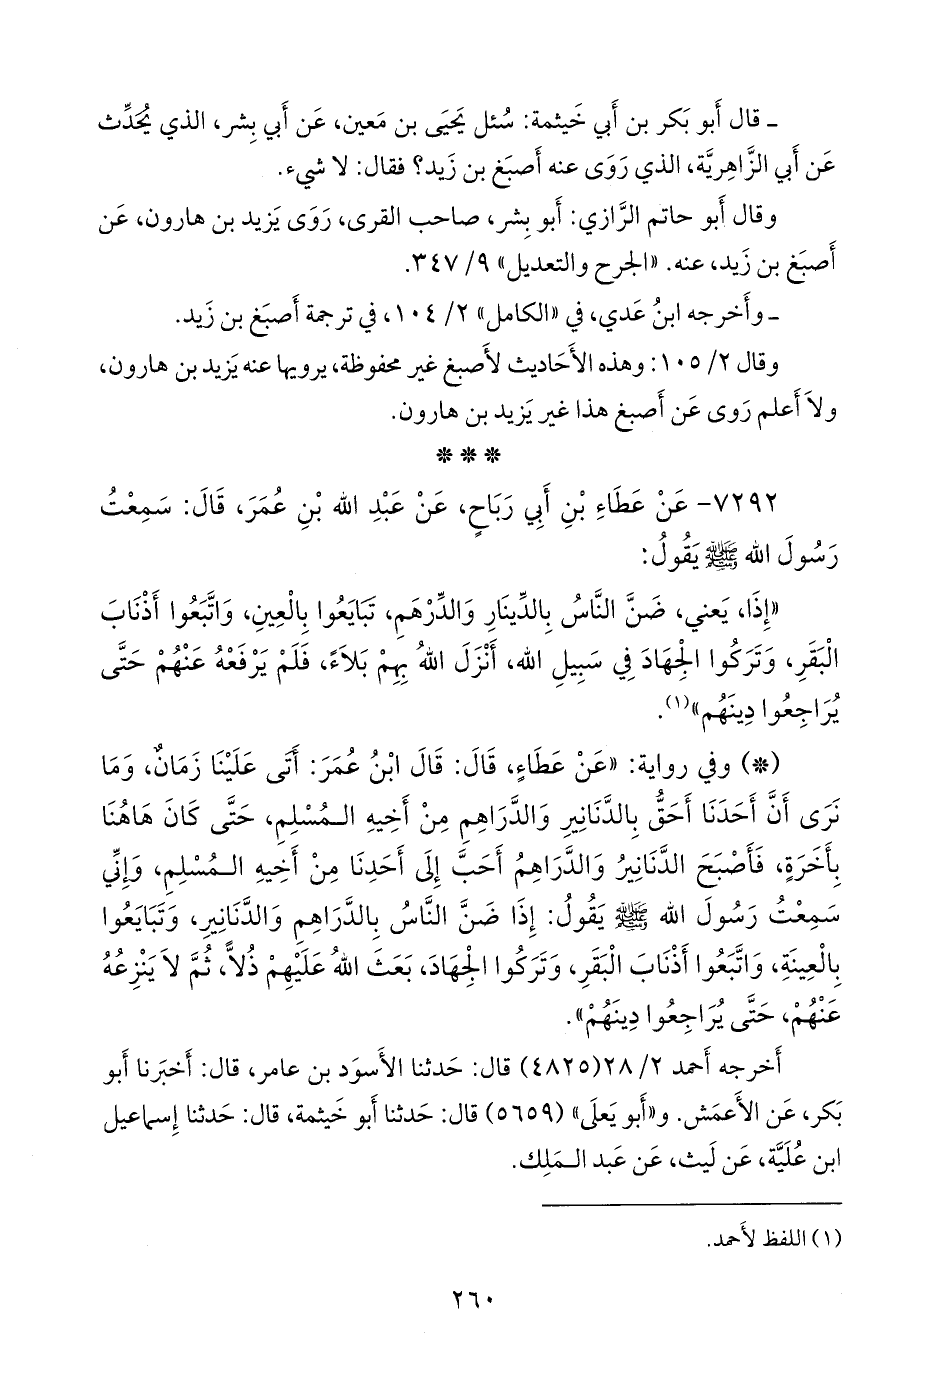 ـ قال أَبو بَكر بن أَبي خَيثمة: سُئل يَحيَى بن مَعين، عَن أَبي بِشر، الذي يُحَدِّث
عَن أَبي الزَّاهِريَّة، الذي رَوَى عنه أَصبَغ بن زَيد؟ فقال: لا شيء.
وقال أَبو حاتم الرَّازي: أَبو بِشر، صاحب القرى، رَوَى يَزيد بن هارون، عَن
أَصبَغ بن زَيد، عنه. «الجرح والتعديل» ٩/ ٣٤٧.
ـ وأَخرجه ابنُ عَدي، في «الكامل» ٢/ ١٠٤، في ترجمة أَصبَغ بن زَيد.
وقال ٢/ ١٠٥: وهذه الأَحاديث لأَصبغ غير محفوظة، يرويها عنه يَزيد بن هارون،
ولاَ أَعلم رَوى عَن أَصبغ هذا غير يَزيد بن هارون.
* * *
٧٢٩٢- عَنْ عَطَاءِ بْنِ أَبِي رَبَاحٍ، عَنْ عَبْدِ الله بْنِ عُمَرَ، قَالَ: سَمِعْتُ
رَسُولَ الله ﷺ يَقُولُ:
«إِذَا، يَعني، ضَنَّ النَّاسُ بِالدِّينَارِ وَالدِّرْهَمِ، تَبَايَعُوا بِالْعِينِ، وَاتَّبَعُوا أَذْنَابَ
الْبَقَرِ، وَتَرَكُوا الْجِهَادَ فِي سَبِيلِ الله، أَنْزَلَ اللهُ بِهِمْ بَلاَءً، فَلَمْ يَرْفَعْهُ عَنْهُمْ حَتَّى
يُرَاجِعُوا دِينَهُم»(١).
(*) وفي رواية: «عَنْ عَطَاءٍ، قَالَ: قَالَ ابْنُ عُمَرَ: أَتَى عَلَيْنَا زَمَانٌ، وَمَا
نَرَى أَنَّ أَحَدَنَا أَحَقُّ بِالدَّنَانِيرِ وَالدَّرَاهِمِ مِنْ أَخِيهِ الـمُسْلِمِ، حَتَّى كَانَ هَاهُنَا
بِأَخَرَةٍ، فَأَصْبَحَ الدَّنَانِيرُ وَالدَّرَاهِمُ أَحَبَّ إِلَى أَحَدِنَا مِنْ أَخِيهِ الـمُسْلِمِ، وَإِنِّي
سَمِعْتُ رَسُولَ الله ﷺ يَقُولُ: إِذَا ضَنَّ النَّاسُ بِالدَّرَاهِمِ وَالدَّنَانِيرِ، وَتَبَايَعُوا
بِالْعِينَةِ، وَاتَّبَعُوا أَذْنَابَ الْبَقَرِ، وَتَرَكُوا الْجِهَادَ، بَعَثَ اللهُ عَلَيْهِمْ ذُلاًّ، ثُمَّ لاَ يَنْزِعُهُ
عَنْهُمْ، حَتَّى يُرَاجِعُوا دِينَهُمْ».
أَخرجه أَحمد ٢/ ٢٨(٤٨٢٥) قال: حَدثنا الأَسوَد بن عامر، قال: أَخبَرنا أَبو
بَكر، عَن الأَعمَش. و«أَبو يَعلَى» (٥٦٥٩) قال: حَدثنا أَبو خَيثمة، قال: حَدثنا إِسماعيل
ابن عُلَيَّة، عَن لَيث، عَن عَبد الـمَلِك.
(١) اللفظ لأَحمد.
٢٦٠